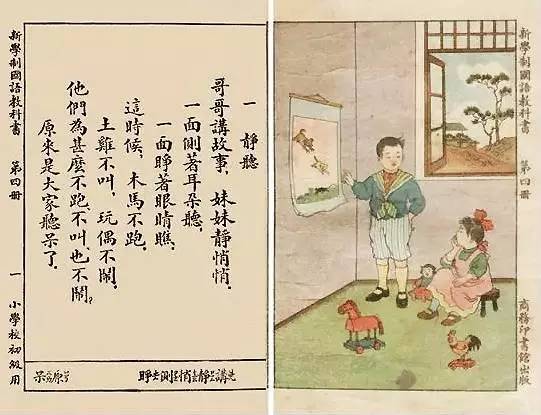 新學制國語教科書 第四冊
商務印書館出版
一 靜聽
哥哥講故事，妹妹靜悄悄．
一面側著耳朵聽，
一面睜著眼睛瞧．
這時候，木馬不跑，
土雞不叫，玩偶不鬧．
他們為甚麼不跑，不叫，也不鬧？
原來是大家聽呆了．
講 靜 悄 側 睜 原 呆
新學制國語教科書 第四冊 一 小學校初級用